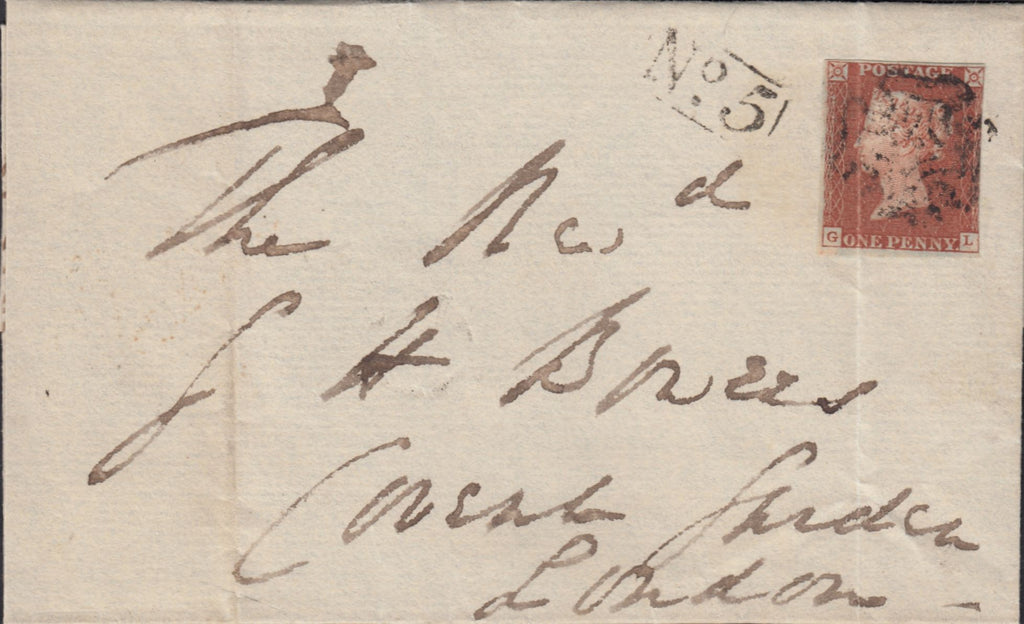 No. 5
POSTAGE
G ONE PENNY L
The Revd
G H Bowers
Covent Garden
London